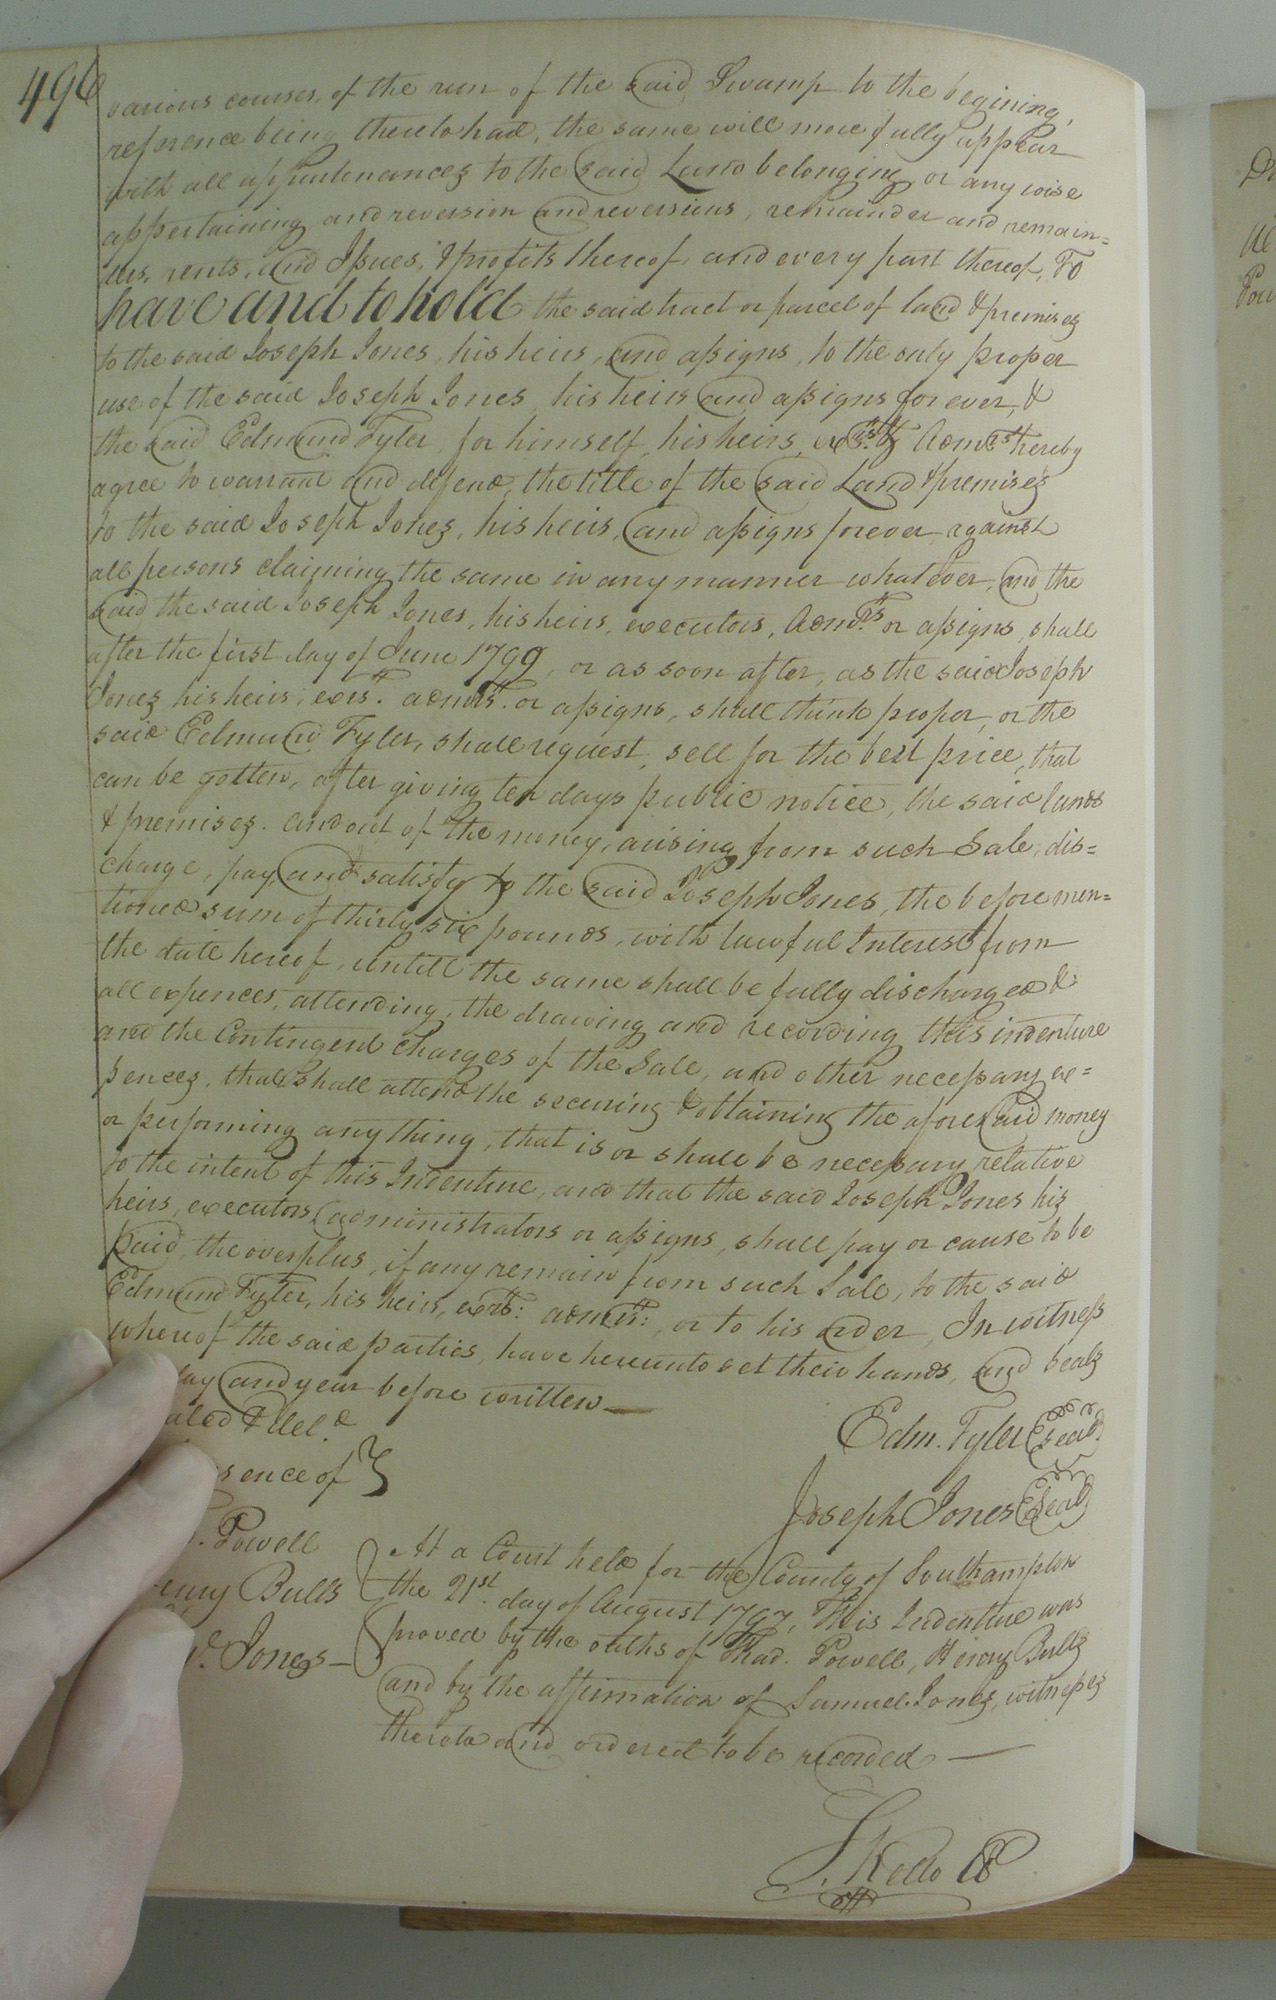 496
various courses, of the run of the said Swamp to the begining,
refrence being thereto had, the same will more fully appear
with all appurtenances to the said Land belonging or any wise
appertaining, and reversion and reversions, remainder and remain=
ders, rents, and Issues, & profits thereof, and every part thereof, To
have and to hold the said tract or parcel of land & premises
to the said Joseph Jones, his heirs, and assigns, to the only proper
use of the said Joseph Jones, his heirs and assigns for ever, &
the said Edmund Tyler, for himself, his heirs, exrs. & Admrs hereby
agree to warrant and defend, the title of the said Land & premises
to the said Joseph Jones, his heirs, and assigns forever against
all persons claiming the same in any manner whatever, and the
said the said Joseph Jones, his heirs, executors, Admrs. or assigns, shall
after the first day of June 1799, or as soon after, as the said Joseph
Jones his heirs, exrs. admrs. or assigns, shall think proper, or the
said Edmund Tyler, shall request, sell for the best price, that
can be gotten, after giving ten days public notice, the said lands
& premises. and out of the money, arising from such Sale, dis=
charge, pay, and satisfy to the said Joseph Jones, the before men=
tioned sum of thirty six pounds, with lawful Interest from
the date hereof, untill the same shall be fully discharged &
all expences, attending, the drawing and recording this indenture
and the Contingent Charges of the Sale, and other necessary ex=
pences, that shall attend the securing & obtaining the aforesaid money
or performing any thing, that is or shall be necessary relative
to the intent of this Indenture, and that the said Joseph Jones his
heirs, executors, administrators or assigns, shall pay or cause to be
paid, the overplus, if any remain from such Sale, to the said
Edmund Tyler, his heirs, exrs: admrs:, or to his order, In witness
whereof the said parties, have hereunto set their hands, and seals
day and year before written
& del.d
Edm. Tyler (seal)
sence of
Joseph Jones (Seal)
Powell
At a Court held for the County of Southampton
Bulls
the 21st. day of August 1797, This Indenture was
Jones
proved by the oaths of Thad. Powell, Henry Bulls
and by the affirmation of Samuel Jones, witnesses
thereto and ordered to be recorded
S. Kello CC